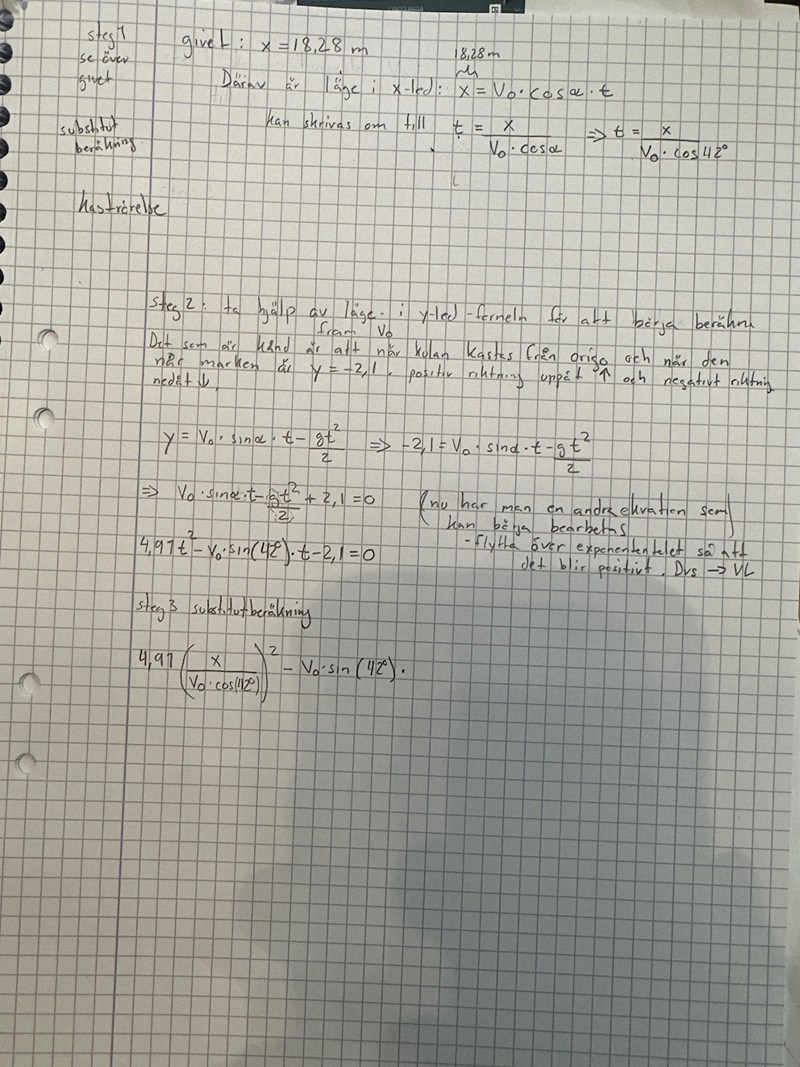 steg 1
se över
givet
givet: x = 18,28 m
18,28 m
Därav är läge i x-led: x = V₀·cosα·t
substitut
beräkning
kan skrivas om till t = x / (V₀·cosα) ⇒ t = x / (V₀·cos42°)
kaströrelse
steg 2: ta hjälp av läge i y-led-formeln för att börja beräkna
fram V₀
Det som är känd är att när kulan kastas från origo och när den
når marken är y = -2,1, positiv riktning uppåt ↑ och negativt riktnig
nedåt ↓.
y = V₀·sinα·t - gt²/2 ⇒ -2,1 = V₀·sinα·t - gt²/2
⇒ V₀·sinα·t - gt²/2 + 2,1 = 0 (nu har man en andraekvation som
kan börja bearbetas)
4,91t² - V₀·sin(42°)·t - 2,1 = 0 - flytta över exponententalet så att
det blir positivt. Dvs → VL
steg 3 substitutberäkning
4,91 (x / (V₀·cos(42°)))² - V₀·sin(42°)·